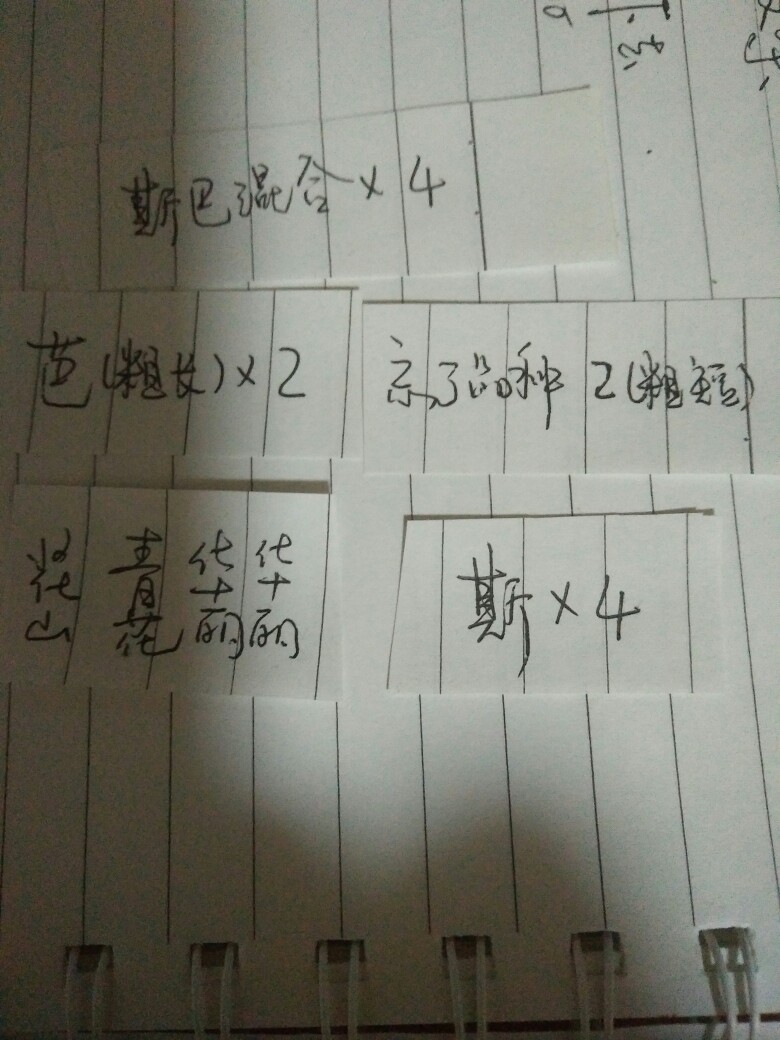 斯巴混合×4
芭(粗长)×2
忘了品种 2(粗短)
花山
青花
华丽
华丽
斯×4